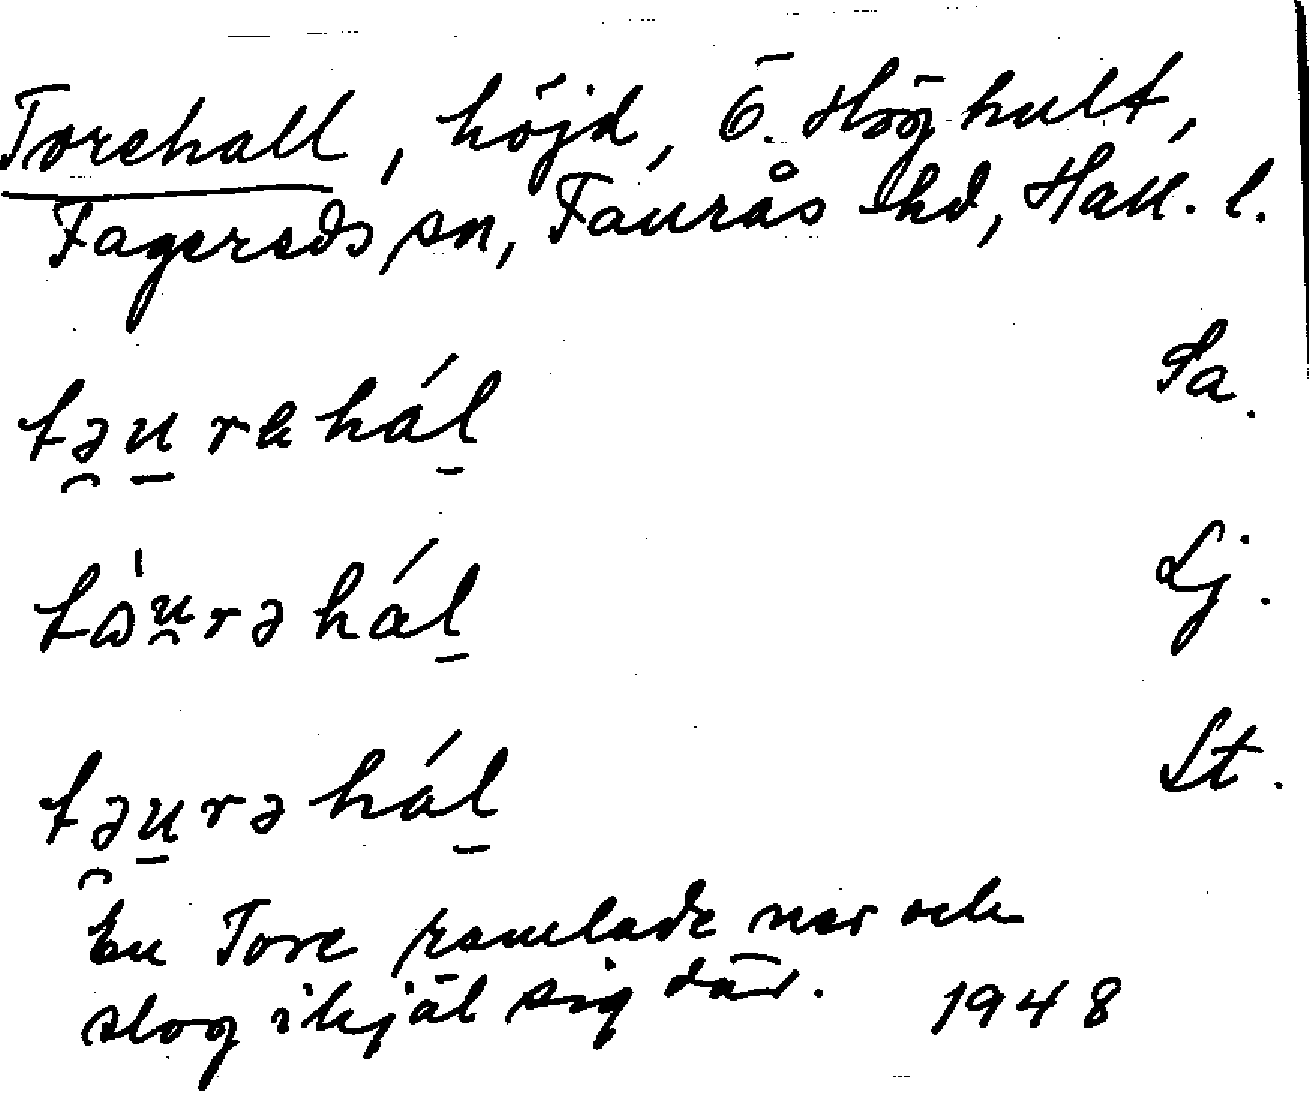 Torehall, höjd, Ö. Höghult,
Fagereds sn, Faurås hd, Hall. l.
Sa.
Lj.
St.
En Tore ramlade ner och
slog ihjäl sig där. 1948